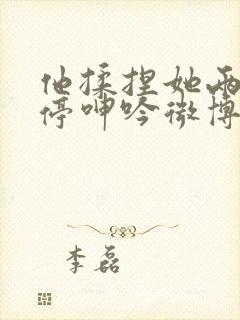 他揉捏她两
停呻吟微博
李磊